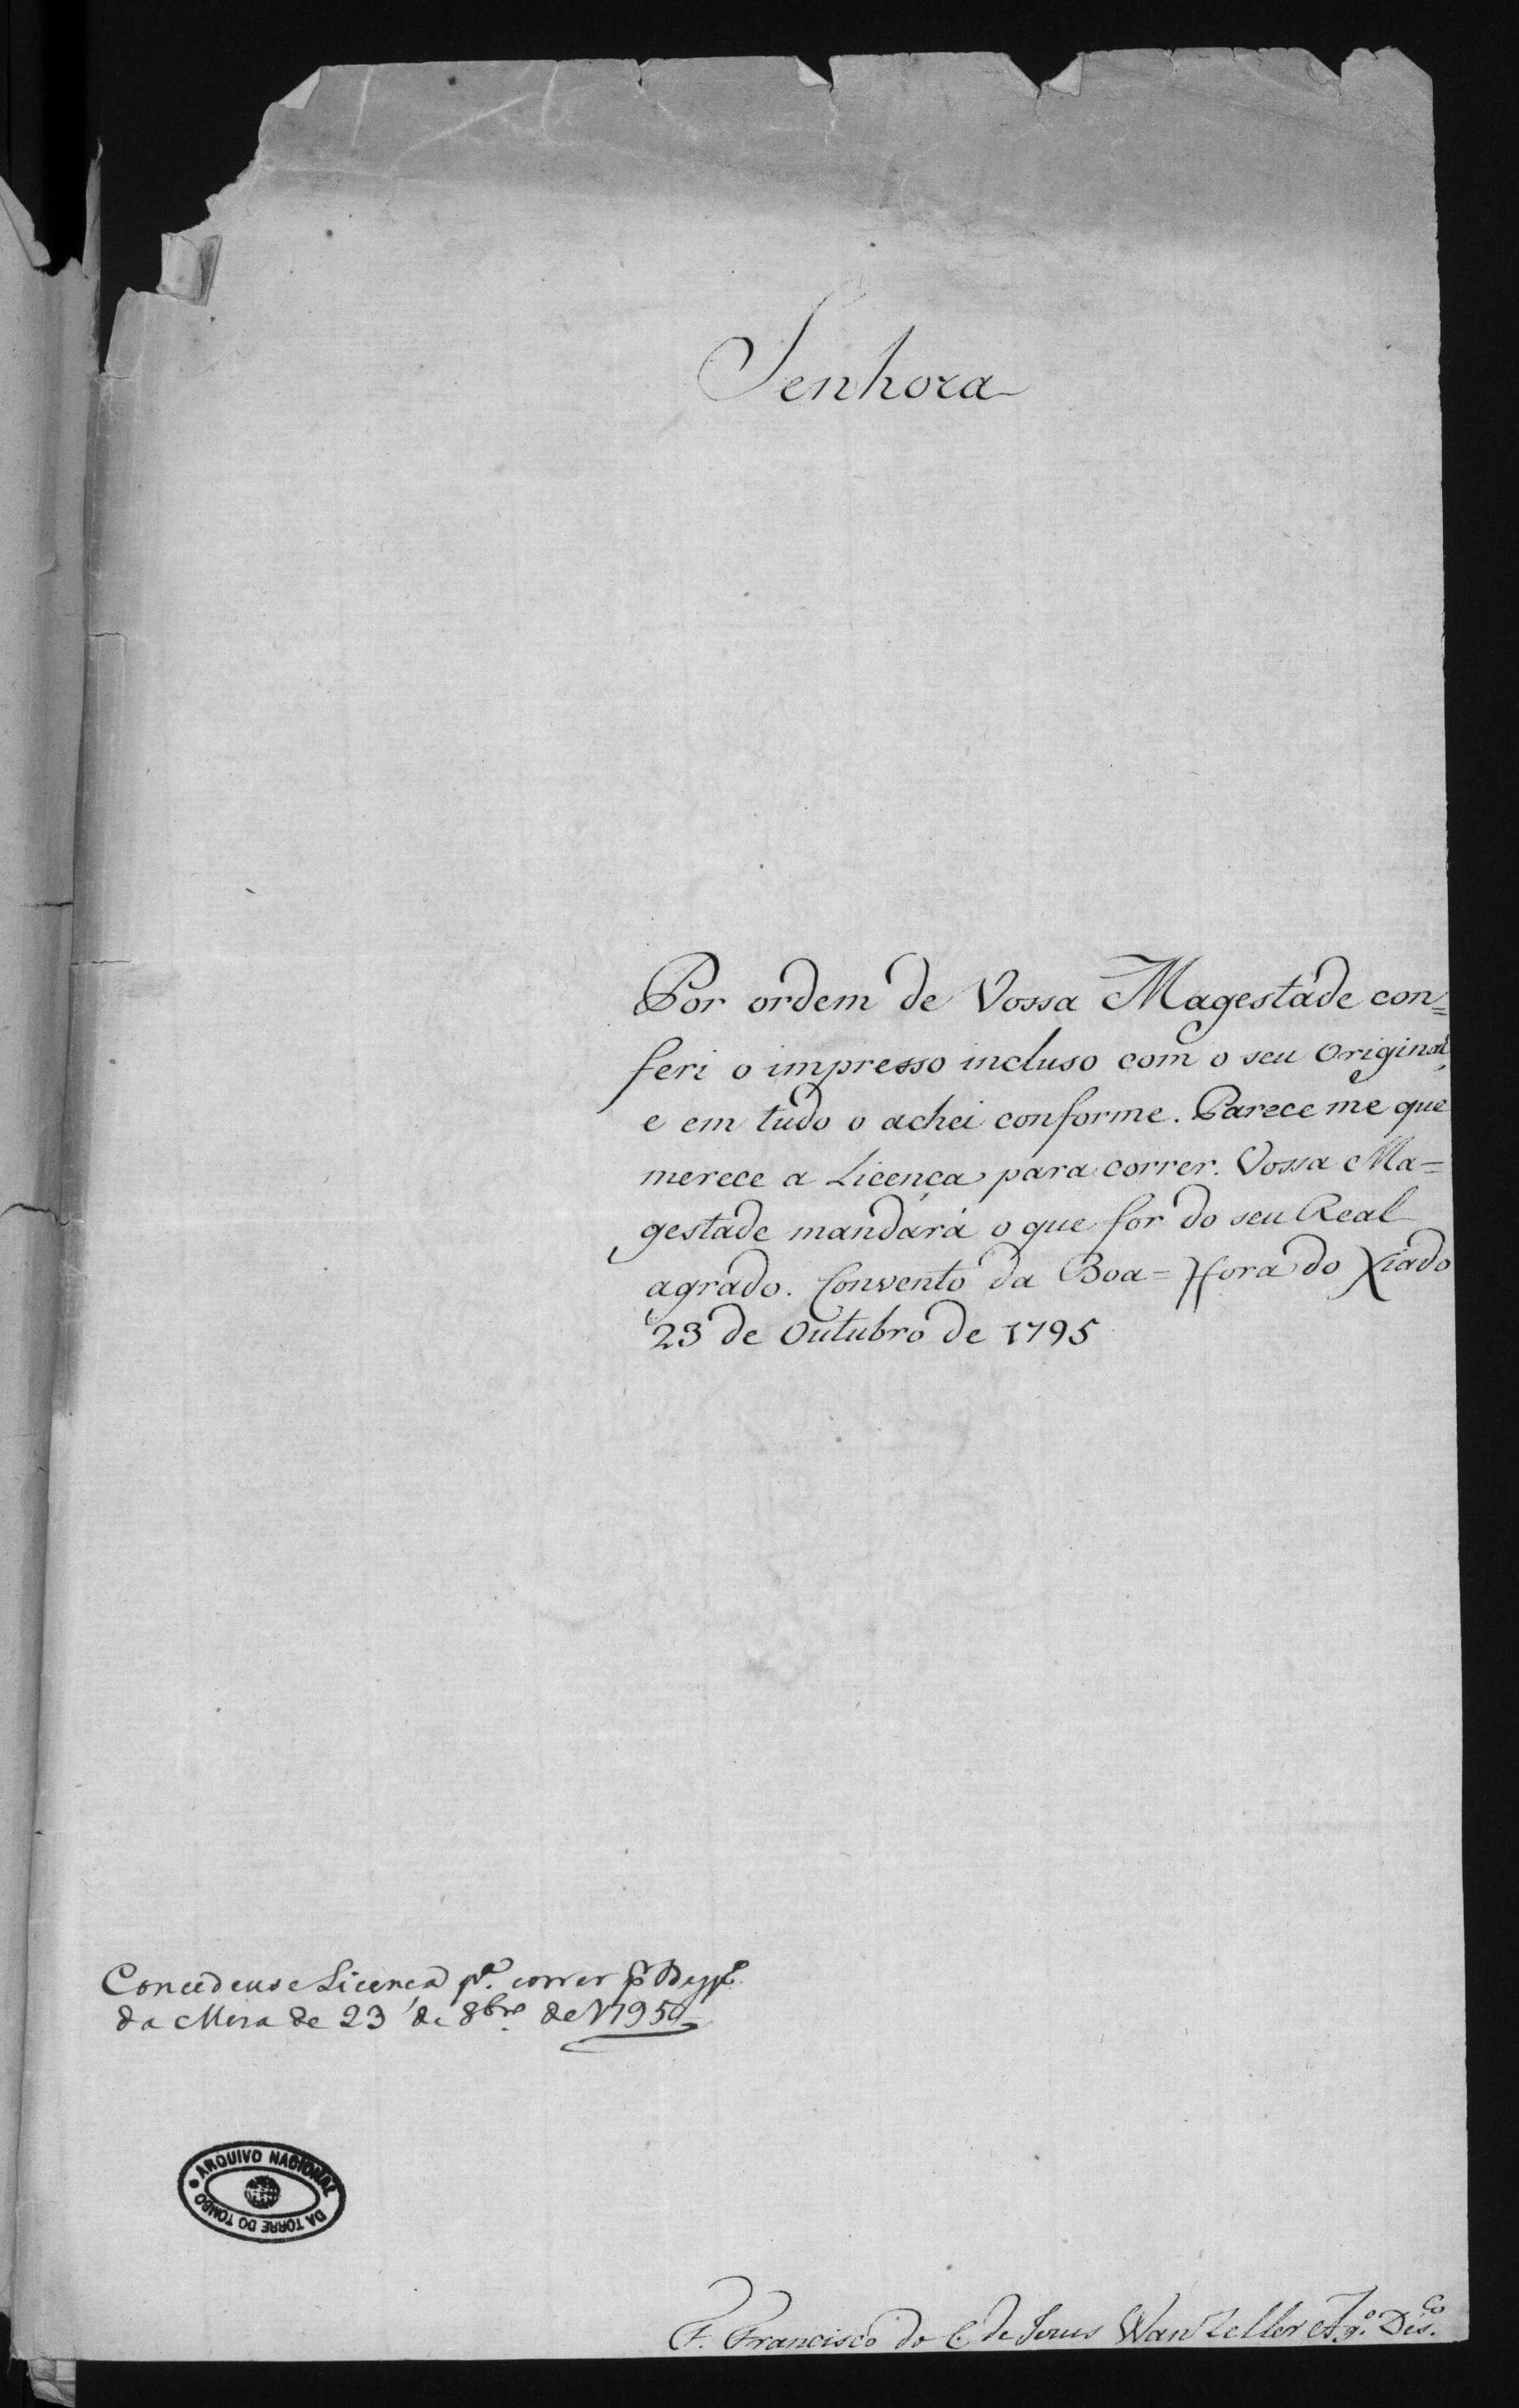 Senhora
Por ordem de Vossa Magestade con=
feri o impresso incluso com o seu Original,
e em tudo o achei conforme. Parece me que
merece a Licença para correr. Vossa Ma=
gestade mandárá o que for do seu Real
agrado. Convento da Boa=Hora do Xiado
23 de Outubro de 1795
Concedeuse Licença pª. correr
da Meza de 23 de 8bro de 1795
ARQUIVO NACIONAL
DA TORRE DO TOMBO
F. Francisco do C. de Jesus Wanzeller Agº. Desço.